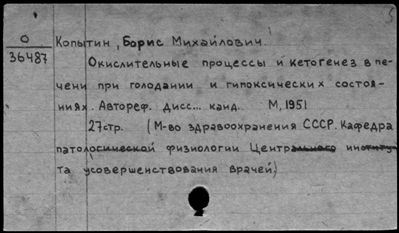 О
36487
Копытин, Борис Михайлович.
Окислительные процессы и кетогенез в пе-
чени при голодании и гипоксических состоя-
ниях. Автореф. дисс... канд. М, 1951
27стр. (М-во здравоохранения СССР. Кафедра
патологической физиологии Центрального институ
та усовершенствования врачей)